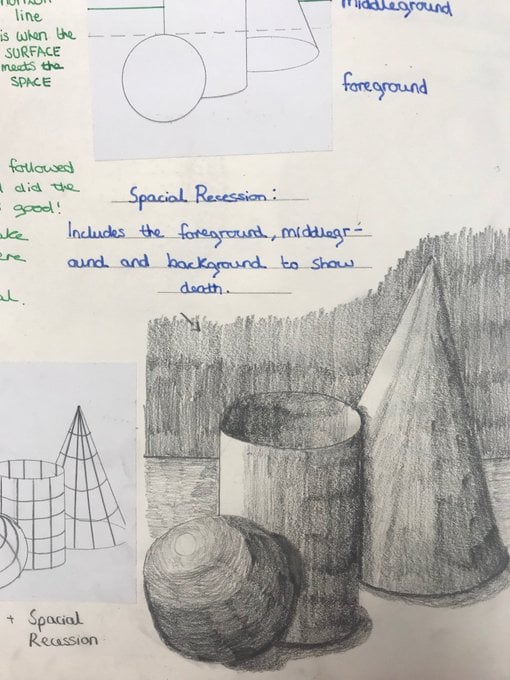 line
is when the
SURFACE
meets the
SPACE
middleground
foreground
followed
did the
good!
Spacial Recession:
Includes the foreground, middlegr-
ound and background to show
death.
+ Spacial
Recession